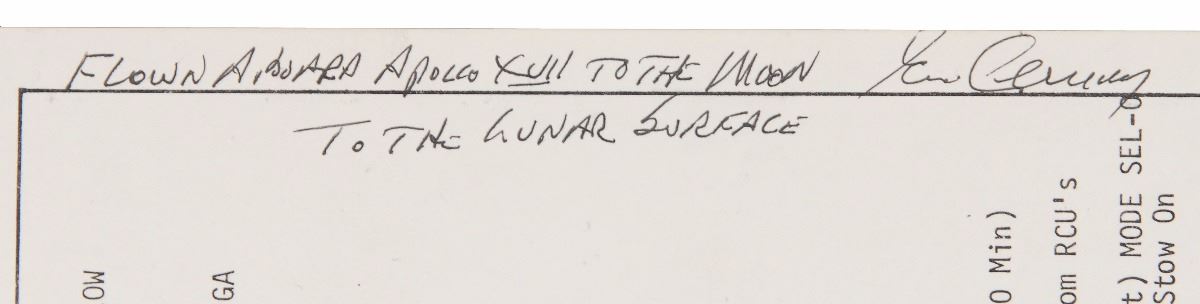 FLOWN ABOARD APOLLO XVII TO THE MOON Gene Cernan
TO THE LUNAR SURFACE
OW
GA
0 Min)
om RCU's
t) MODE SEL-O
Stow On